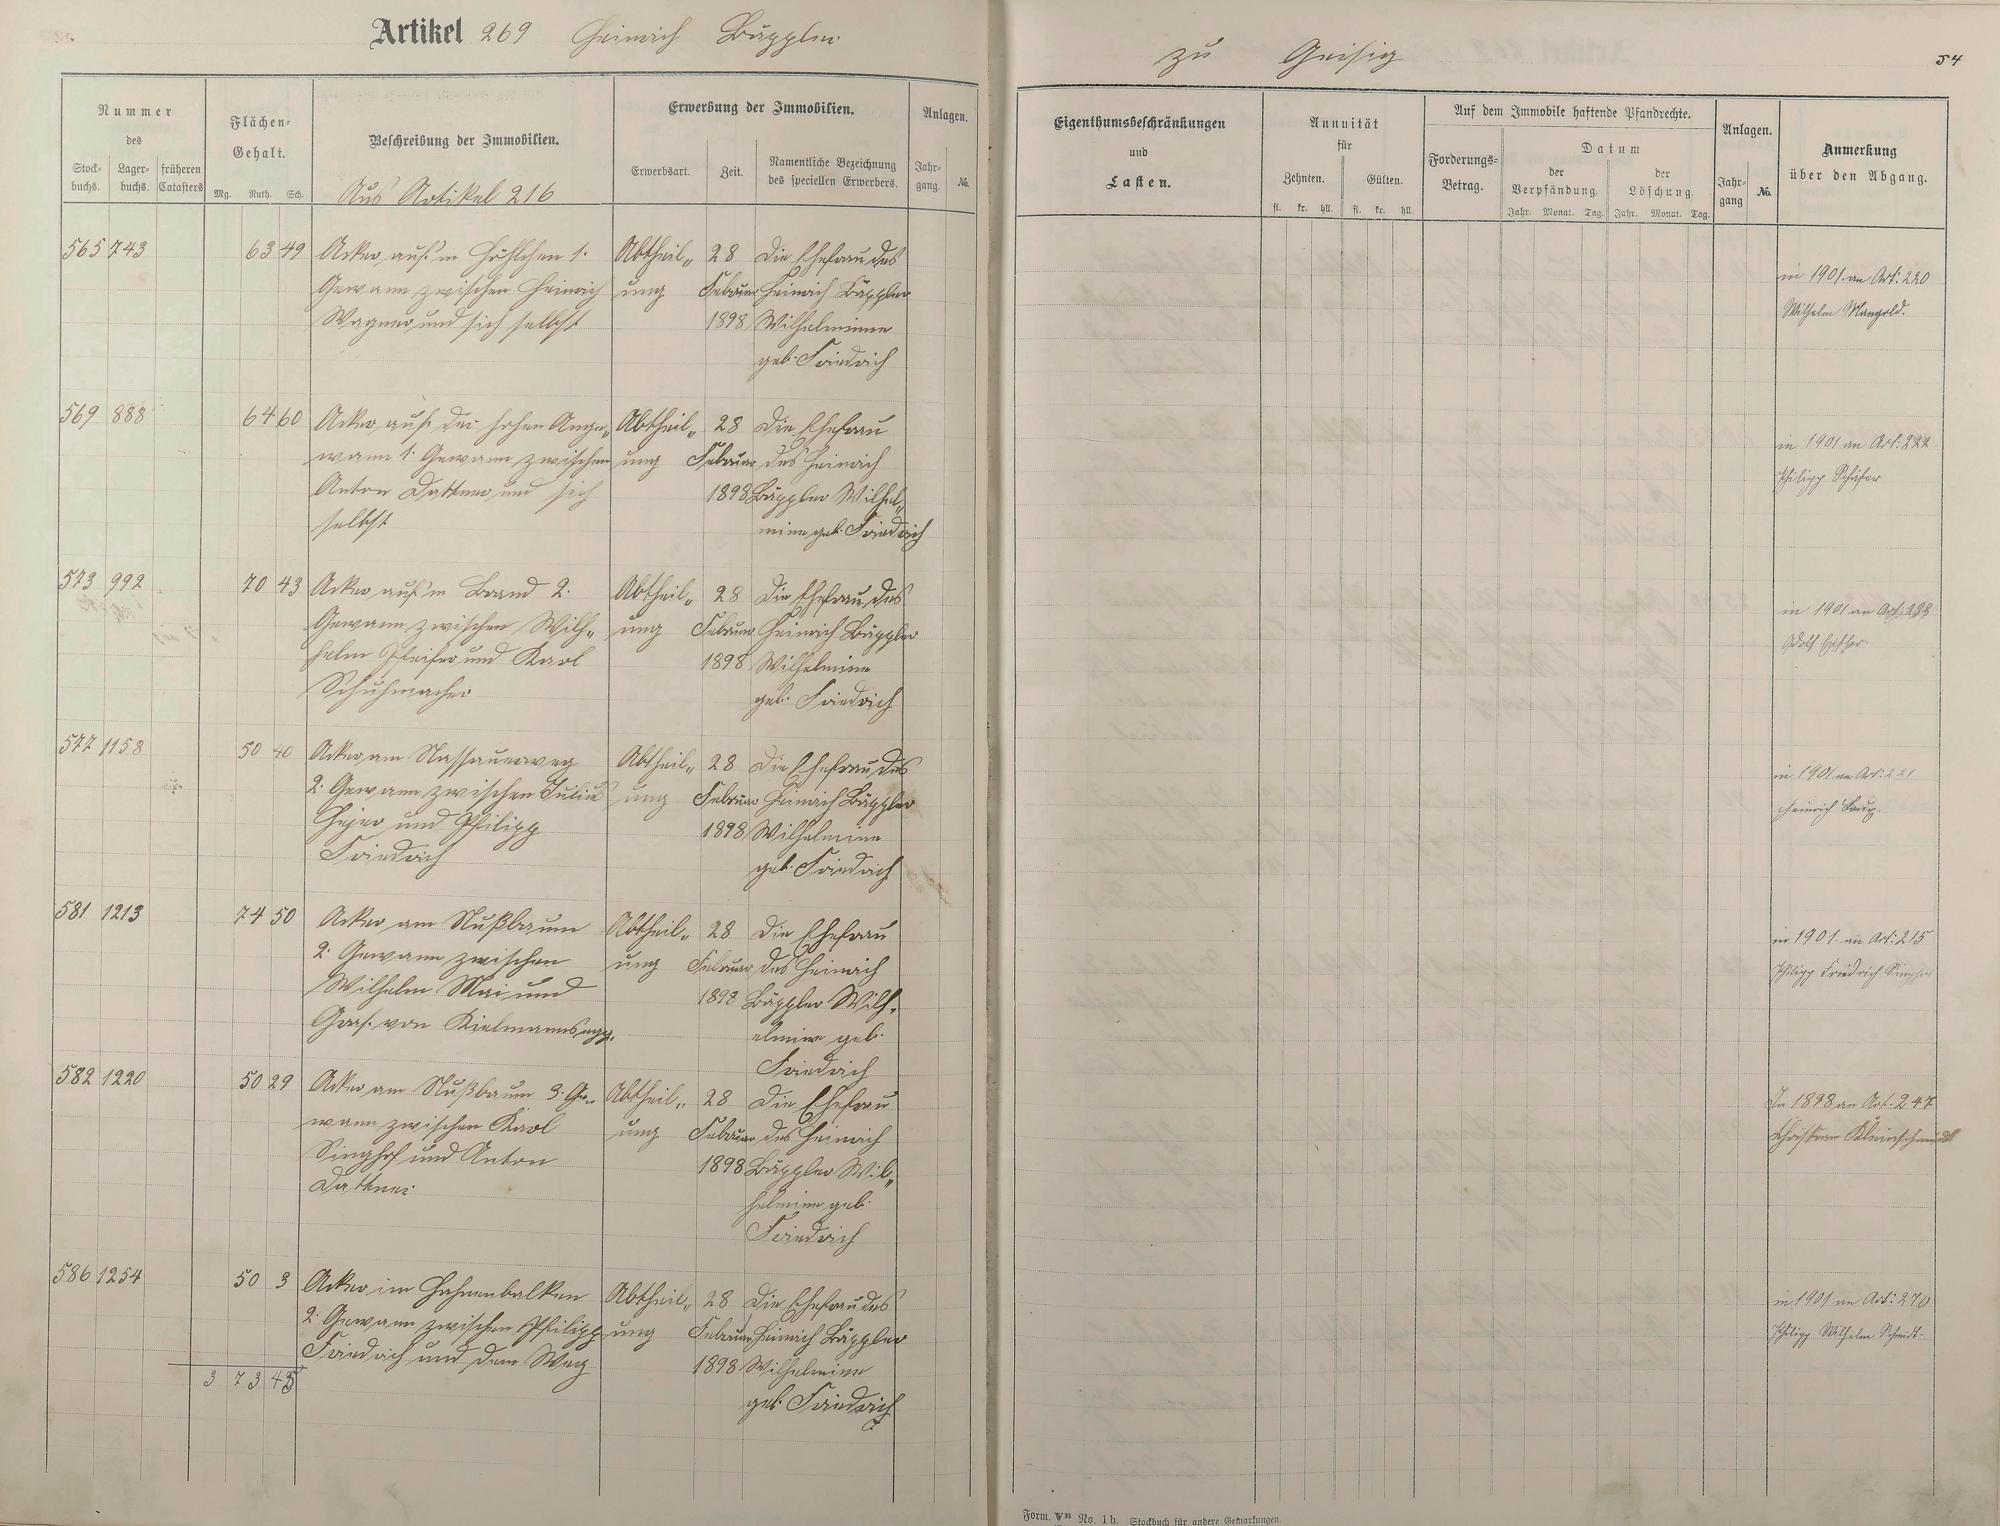 Artikel 269 Heinrich Bäppler
zu Geisig
54
Nummer
des
Stock-
buchs.
Lager-
buchs.
früheren
Catasters
Flächen-
Gehalt.
Mg. Ruth. Sch.
Beschreibung der Immobilien.
Aus Artikel 216
Erwerbung der Immobilien.
Erwerbsart.
Zeit.
Namentliche Bezeichnung
des speciellen Erwerbers.
Anlagen.
Jahr-
gang.
No.
Eigenthumsbeschränkungen
und
Lasten.
Annuität
für
Zehnten.
Gülten.
fl. kr. hll. fl. kr. hll.
Auf dem Immobile haftende Pfandrechte.
Forderungs-
Betrag.
Datum
der
Verpfändung.
der
Löschung.
Jahr. Monat. Tag. Jahr. Monat. Tag.
Anlagen.
Jahr-
gang
No.
Anmerkung
über den Abgang.
565 743 63 49 Acker auf'm Höhlchen 1. Abtheil„ 28 Die Ehefrau des
Gewann zwischen Heinrich ung Februar Heinrich Bäppler
Wagner und sich selbst 1898 Wilhelmine
geb. Friedrich
in 1901 an Art: 220
Wilhelm Mangold.
569 888 64 60 Acker auf der hohen Ange„ Abtheil„ 28 Die Ehefrau
wann 1. Gewann zwischen ung Februar des Heinrich
Anton Dattner und sich 1898 Bäppler Wilhel„
selbst mine geb. Friedrich
in 1901 an Art: 222
Philipp Schäfer
573 992 70 43 Acker auf'm Brand 2. Abtheil„ 28 Die Ehefrau des
Gewann zwischen Wilh„ ung Februar Heinrich Bäppler
helm Pfeifer und Karl 1898 Wilhelmine
Schuhmacher geb. Friedrich
in 1901 an Art:
Adolf
577 1158 50 40 Acker am Nassauerweg Abtheil„ 28 Die Ehefrau des
2. Gewann zwischen Julius ung Februar Heinrich Bäppler
und Philipp 1898 Wilhelmine
Friedrich geb. Friedrich
in 1901 an Art: 221
Heinrich
581 1213 74 50 Acker am Nußbaum Abtheil„ 28 Die Ehefrau
2. Gewann zwischen ung Februar des Heinrich
Wilhelm Mai und 1898 Bäppler Wilh„
Graf von Kielmannsegg. elmine geb.
Friedrich
in 1901 an Art: 215
Philipp Friedrich Singhof
582 1220 50 29 Acker am Nußbaum 3. Ge„ Abtheil„ 28 Die Ehefrau
wann zwischen Karl ung Februar des Heinrich
Singhof und Anton 1898 Bäppler Wil„
Dattner helmine geb.
Friedrich
In 1898 an Art: 247
Christian Kleinschmidt
586 1254 50 3 Acker im Hahnenbalken Abtheil„ 28 Die Ehefrau des
2. Gewann zwischen Philipp ung Februar Heinrich Bäppler
Friedrich und dem Weg 1898 Wilhelmine
geb. Friedrich
in 1901 an Art: 270
Philipp Wilhelm Schmidt.
3 73 45
Form. VB No. 1b. Stockbuch für andere Gemarkungen.